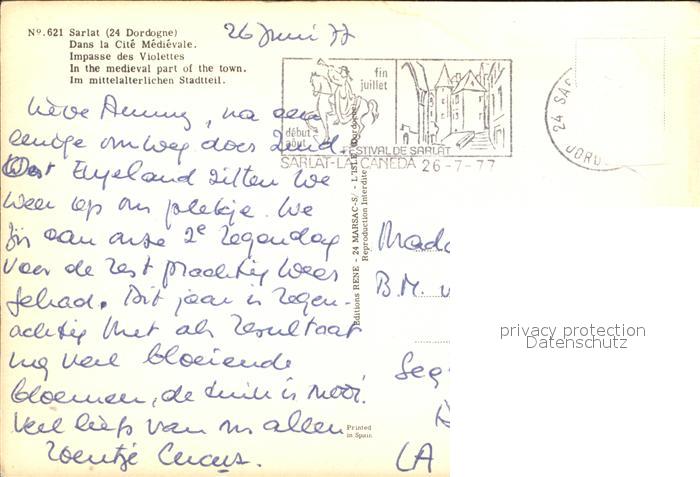 Nº. 621 Sarlat (24 Dordogne)
Dans la Cité Médiévale.
Impasse des Violettes
In the medieval part of the town.
Im mittelalterlichen Stadtteil.
26 Juni 77
fin
juillet
début
août
FESTIVAL DE SARLAT
SARLAT-LA-CANEDA 26-7-77
24 SAR
DORD
Lieve Anny, na een
enige omweg door Zuid.
West Engeland zitten we
weer op ons plekje. We
zijn aan onze 2e regendag
voor de rest prachtig weer
gehad. Dit jaar is regen-
achtig met als resultaat
nog veel bloeiende
bloemen, de tuin is mooi.
Veel liefs van ons allen
Zoentje
Editions RENE - 24 MARSAC-S/-L'ISLE (Dordogne)
Reproduction Interdite
Printed
in Spain
Mada
B.M. v
Seg
LA
privacy protection
Datenschutz